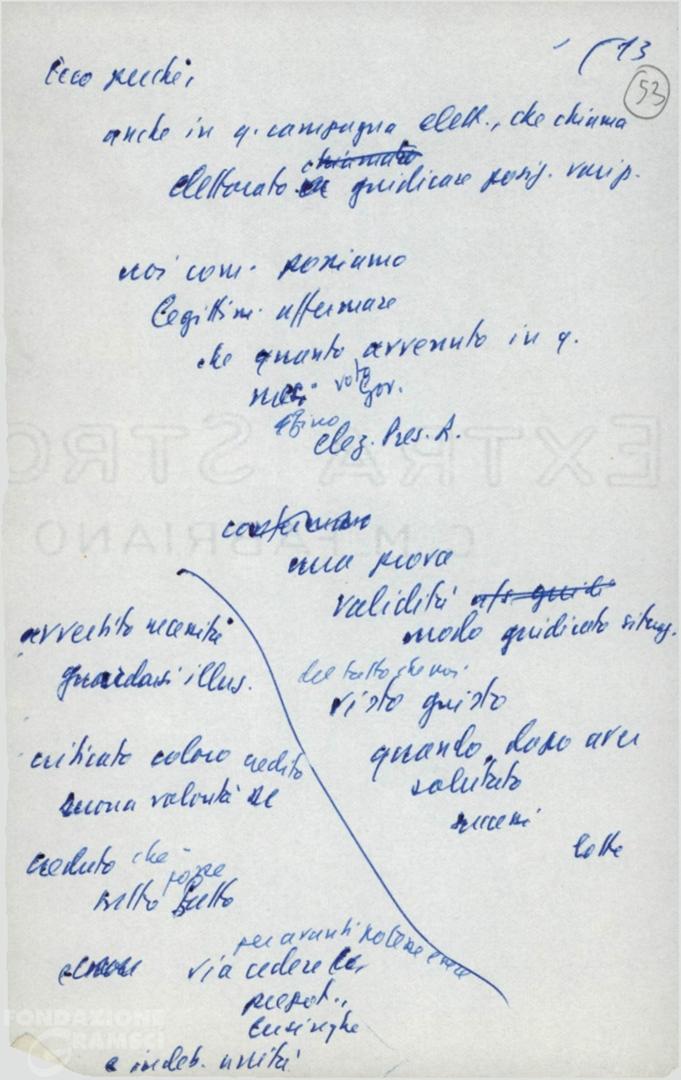 13
53
Ecco perché,
anche in q. campagna elett., che chiama
chiamato
elettorato a giudicare posiz. vari p.
noi com. possiamo
legittim. affermare
che quanto avvenuto in q.
mesi voto Gov.
e fino
elez. Pres. R.
costituisce
una prova
validità
modo giudicato situaz.
del fatto che noi
visto giusto
quando, dopo aver
salutato
successi
lotte
avvertito necessità
guardarsi illus.
criticato coloro credito
buona volontà
creduto che
fosse
tutto fatto
per avanti potesse
via cedere
prepot.,
lusinghe
e indeb. unità
EXTRA STRO
C.M. FABRIANO
FONDAZIONE
GRAMSCI